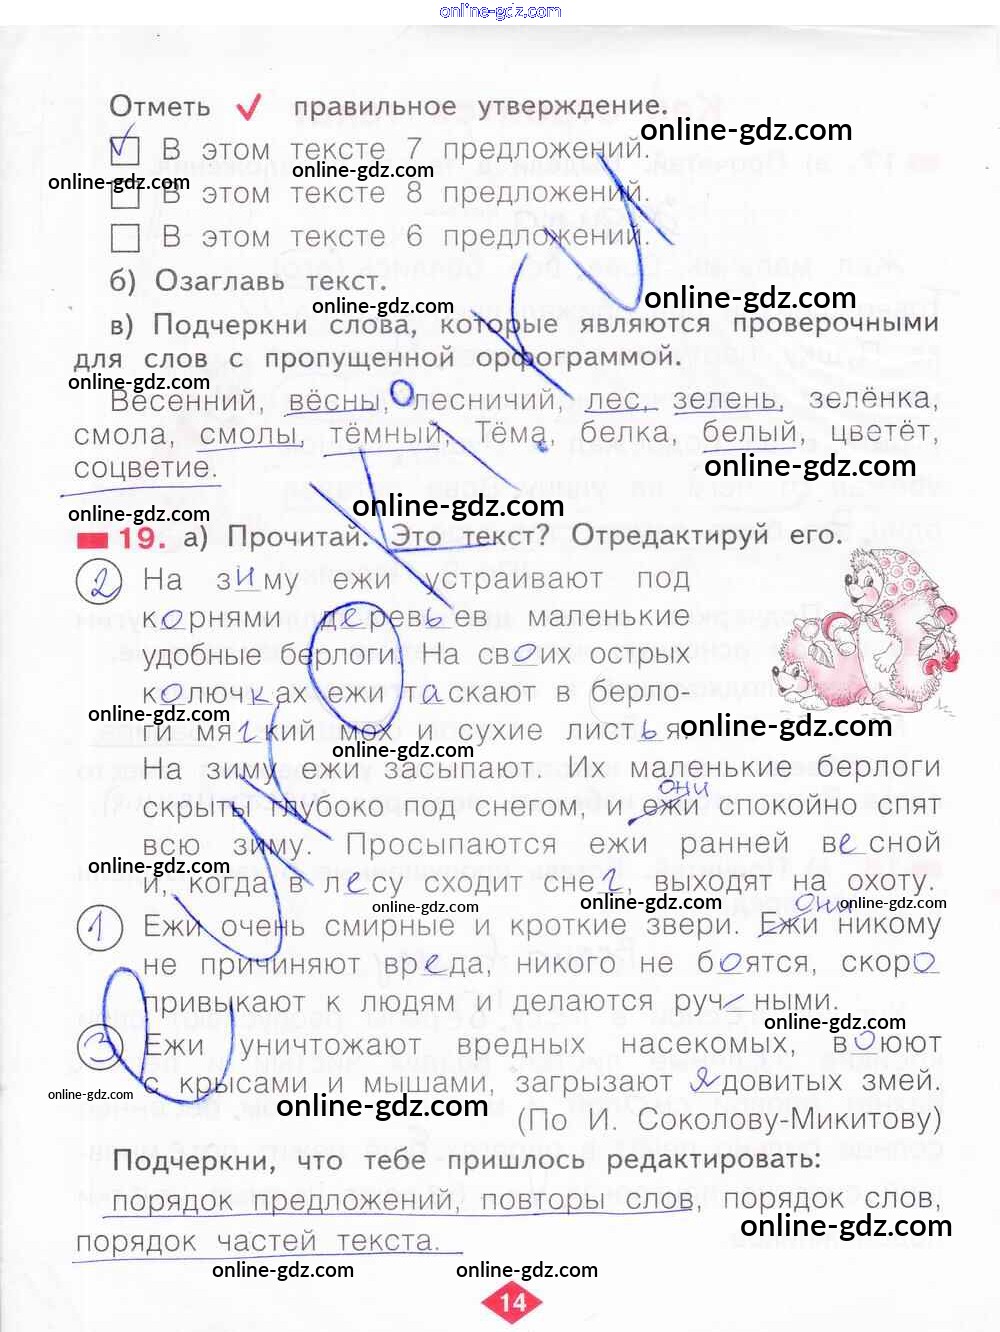 online-gdz.com
Отметь ✓ правильное утверждение.
online-gdz.com
✓ В этом тексте 7 предложений.
online-gdz.com online-gdz.com
В этом тексте 8 предложений.
В этом тексте 6 предложений.
б) Озаглавь текст.
online-gdz.com online-gdz.com
в) Подчеркни слова, которые являются проверочными
для слов с пропущенной орфограммой.
online-gdz.com
Весенний, вёсны, лесничий, лес, зелень, зелёнка,
смола, смолы, тёмный, Тёма, белка, белый, цветёт,
соцветие.
online-gdz.com
online-gdz.com online-gdz.com
19. а) Прочитай. Это текст? Отредактируй его.
2 На зиму ежи устраивают под
корнями деревьев маленькие
удобные берлоги. На своих острых
колючках ежи таскают в берло-
online-gdz.com
ги мягкий мох и сухие листья.
online-gdz.com online-gdz.com
На зиму ежи засыпают. Их маленькие берлоги
они
скрыты глубоко под снегом, и ежи спокойно спят
всю зиму. Просыпаются ежи ранней весной
online-gdz.com
и, когда в лесу сходит снег, выходят на охоту.
online-gdz.com online-gdz.com online-gdz.com
Они
1 Ежи очень смирные и кроткие звери. Ежи никому
не причиняют вреда, никого не боятся, скоро
привыкают к людям и делаются ручными.
online-gdz.com
3 Ежи уничтожают вредных насекомых, воюют
с крысами и мышами, загрызают ядовитых змей.
online-gdz.com online-gdz.com online-gdz.com
(По И. Соколову-Микитову)
Подчеркни, что тебе пришлось редактировать:
порядок предложений, повторы слов, порядок слов,
online-gdz.com
порядок частей текста.
online-gdz.com online-gdz.com
14